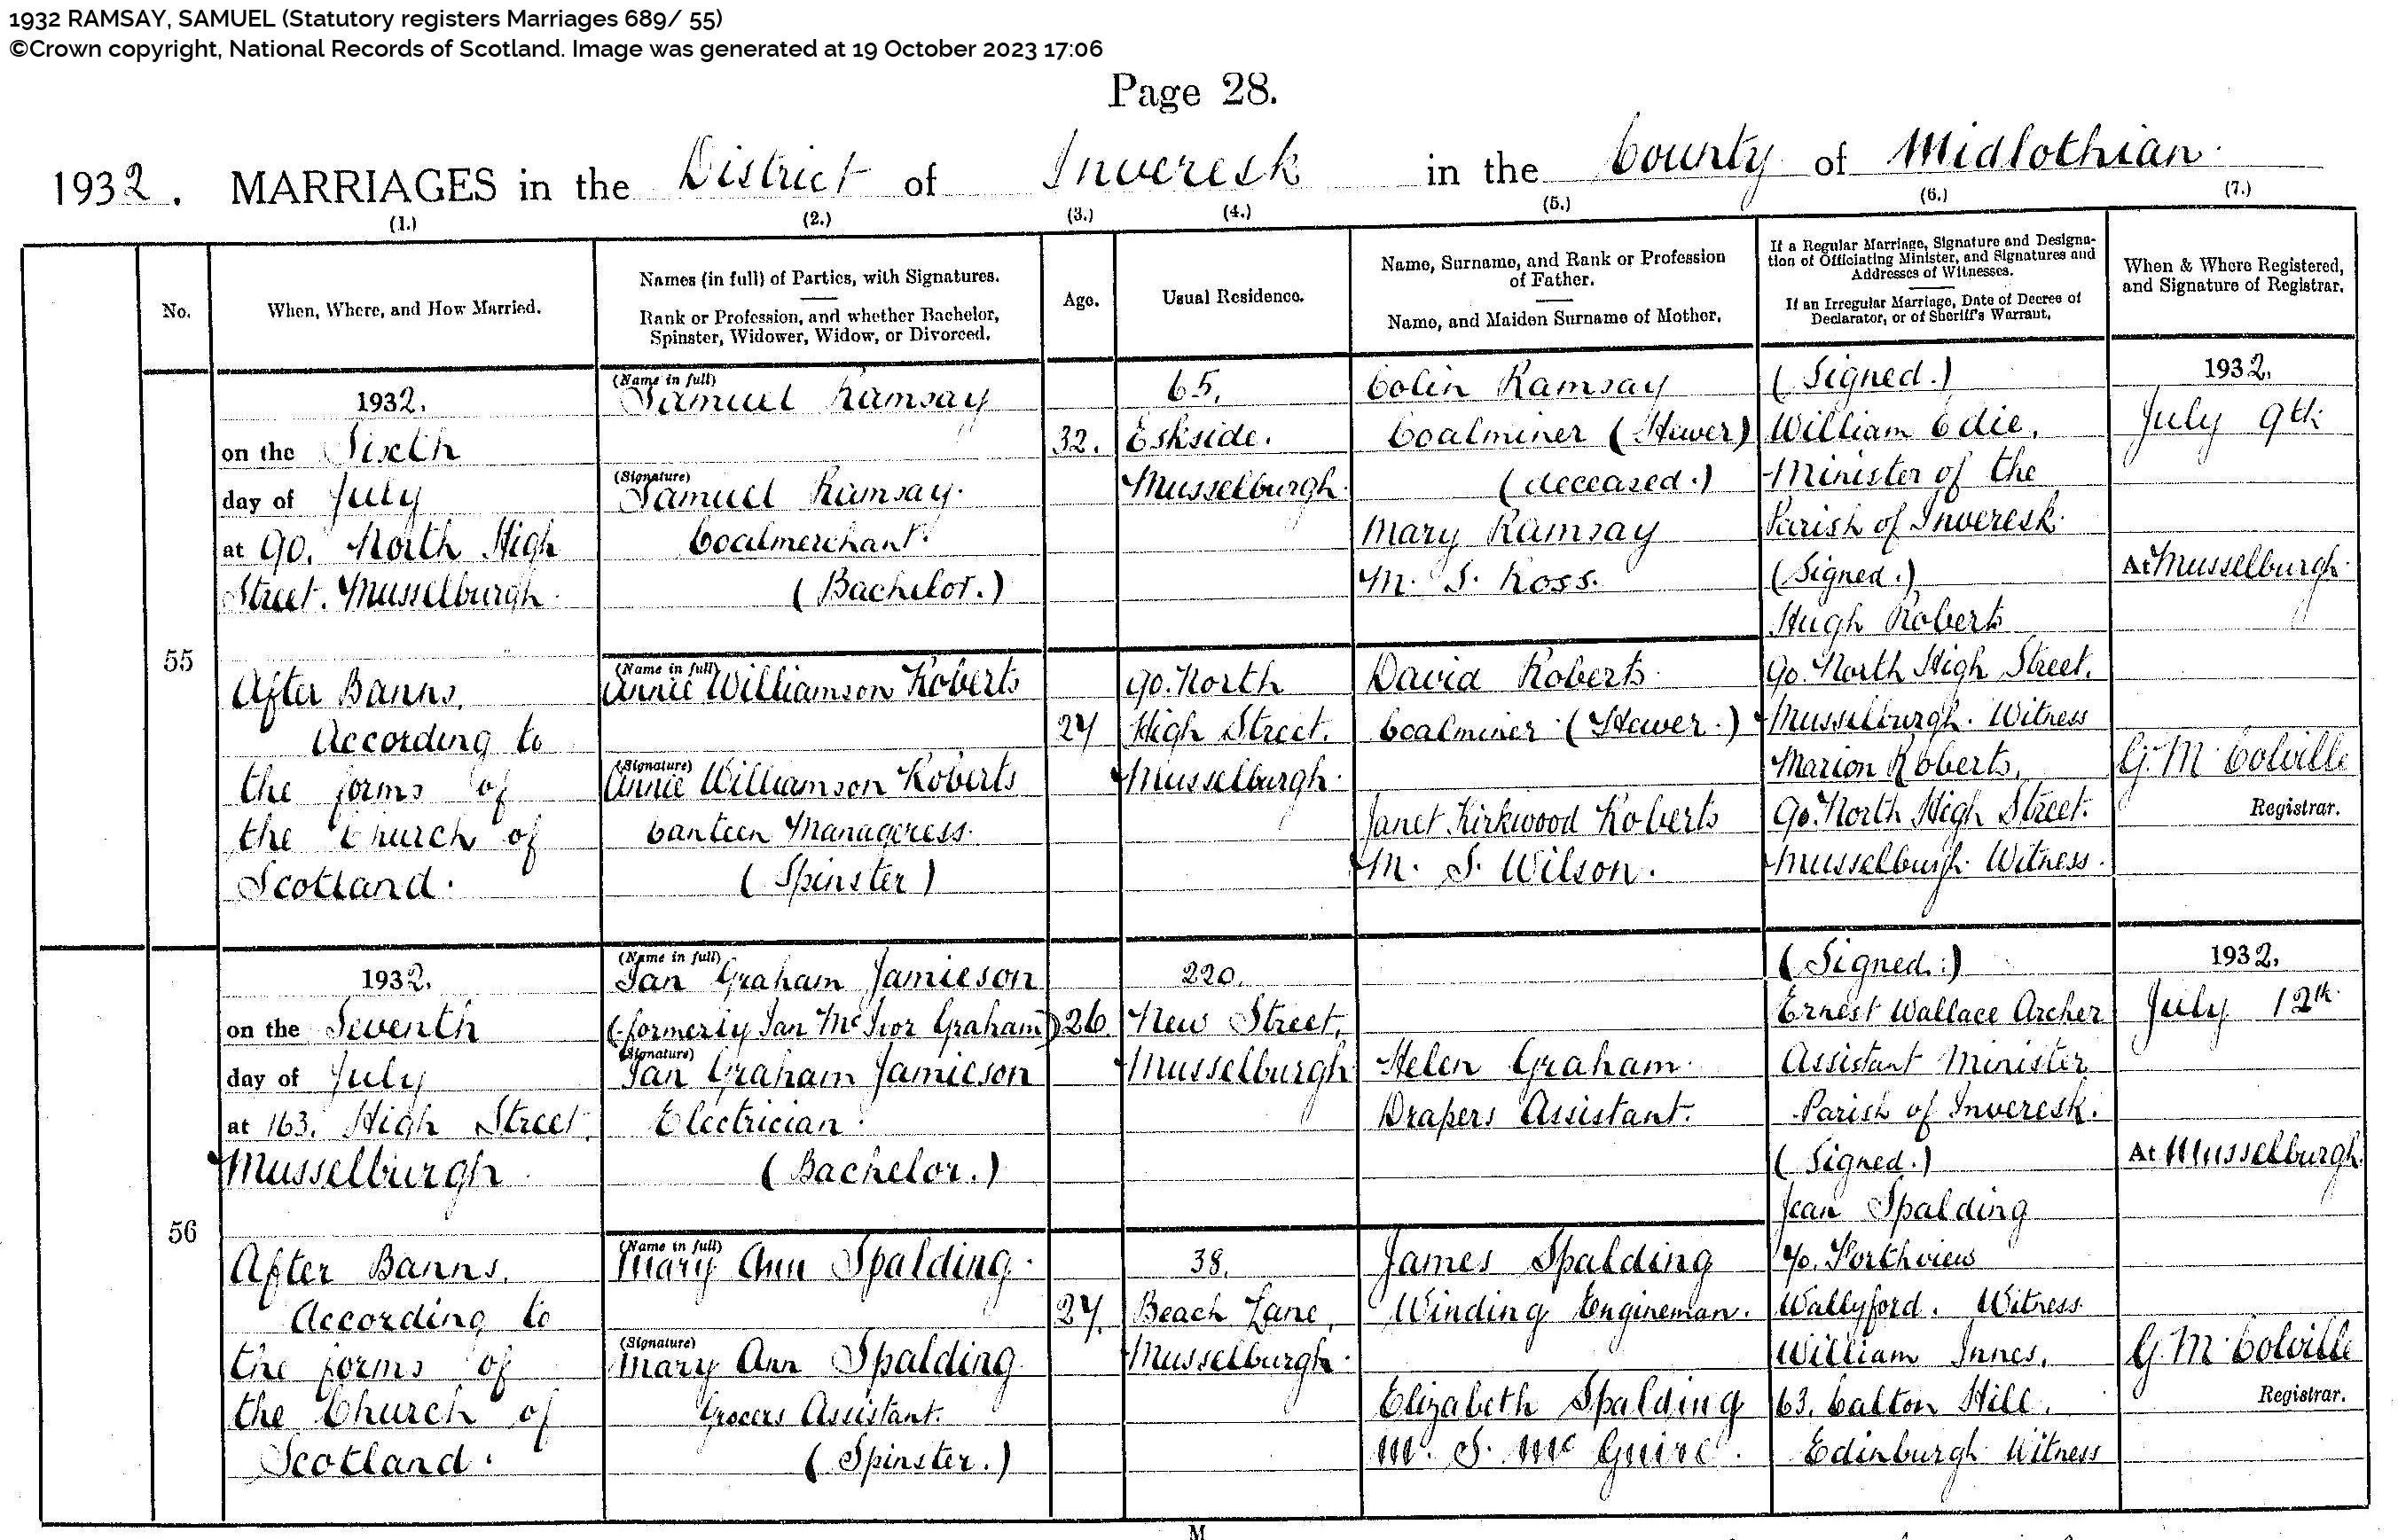 1932 RAMSAY, SAMUEL (Statutory registers Marriages 689/ 55)
©Crown copyright, National Records of Scotland. Image was generated at 19 October 2023 17:06
Page 28.
1932. MARRIAGES in the District of Inveresk in the County of Midlothian.
(1.) (2.) (3.) (4.) (5.) (6.) (7.)
No.
When, Where, and How Married.
Names (in full) of Parties, with Signatures.
Rank or Profession, and whether Bachelor,
Spinster, Widower, Widow, or Divorced.
Age.
Usual Residence.
Name, Surname, and Rank or Profession
of Father.
Name, and Maiden Surname of Mother.
If a Regular Marriage, Signature and Designa-
tion of Officiating Minister, and Signatures and
Addresses of Witnesses.
If an Irregular Marriage, Date of Decree of
Declarator, or of Sheriff's Warrant.
When & Where Registered,
and Signature of Registrar.
55
1932.
on the Sixth
day of July
at 90. North High
Street. Musselburgh.
After Banns.
According to
the forms of
the Church of
Scotland.
(Name in full)
Samuel Ramsay
(Signature)
Samuel Ramsay.
Coalmerchant.
(Bachelor.)
(Name in full)
Annie Williamson Roberts
(Signature)
Annie Williamson Roberts
Canteen Manageress.
(Spinster)
32.
27
65.
Eskside.
Musselburgh.
90. North
High Street.
Musselburgh.
Colin Ramsay
Coalminer (Hewer)
(deceased.)
Mary Ramsay
M. S. Ross.
David Roberts.
Coalminer (Hewer.)
Janet Kirkwood Roberts
M. S. Wilson.
(Signed.)
William Edie,
Minister of the
Parish of Inveresk.
(Signed.)
Hugh Roberts
90. North High Street.
Musselburgh. Witness
Marion Roberts.
90. North High Street.
Musselburgh. Witness.
1932.
July 9th
At Musselburgh.
G. M. Colville
Registrar.
56
1932.
on the Seventh
day of July
at 163. High Street.
Musselburgh
After Banns.
According to
the forms of
the Church of
Scotland.
(Name in full)
Ian Graham Jamieson
(formerly Ian McIvor Graham)
(Signature)
Ian Graham Jamieson
Electrician.
(Bachelor.)
(Name in full)
Mary Ann Spalding.
(Signature)
Mary Ann Spalding
Grocers Assistant.
(Spinster.)
26
27.
220.
New Street,
Musselburgh
38.
Beach Lane,
Musselburgh.
Helen Graham.
Drapers Assistant.
James Spalding
Winding Engineman.
Elizabeth Spalding
M. S. McGuire.
(Signed.)
Ernest Wallace Archer
Assistant Minister
Parish of Inveresk.
(Signed.)
Jean Spalding
Forthview
Wallyford. Witness.
William Innes.
63. Calton Hill.
Edinburgh Witness
1932.
July 12th
At Musselburgh.
G. M. Colville
Registrar.
M